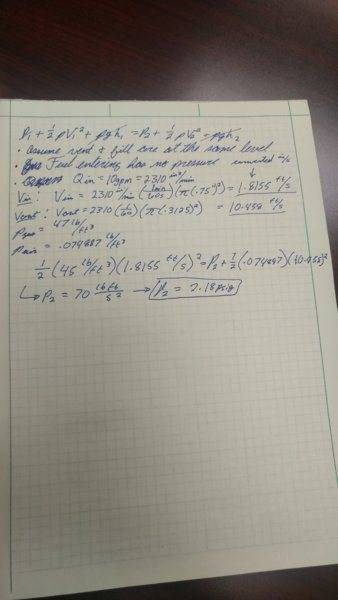 P₁ + ½ρV₁² + ρgh₁ = P₂ + ½ρV₂² + ρgh₂
• Assume vent & fill are at the same level
• Fuel entering has no pressure
• Qin = 10gpm = 2310 in³/min converted in/s
Vin: Vin = 2310 in³/min (1min/60s)(π(.75in)²) = 1.8155 ft/s
Vvent: Vvent = 2310 (1/60)(π(.3125)²) = 10.458 ft/s
ρgas = 47 lb/ft³
ρair = .074887 lb/ft³
½(45 lb/ft³)(1.8155 ft/s)² = P₂ + ½(.074887)(10.458)²
↳ P₂ = 70 → P₂ = 2.18 psig